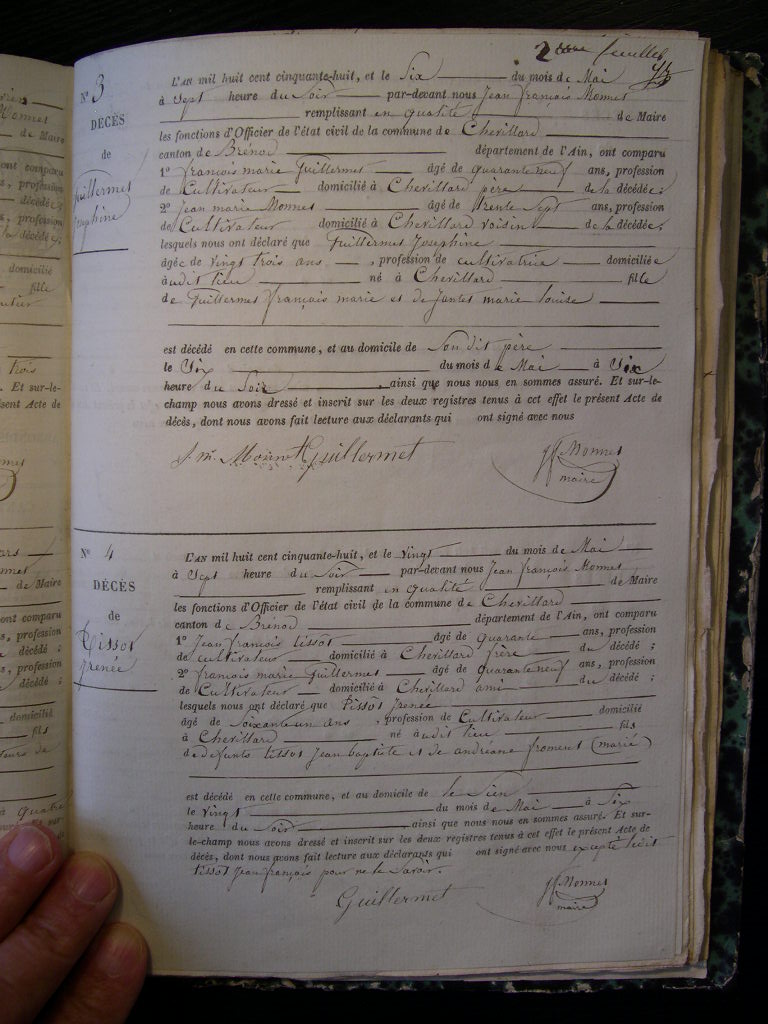 2eme feuillet
N° 3
DÉCÈS
de
Guillermet
Josephine
L'AN mil huit cent cinquante-huit, et le Six du mois de Mai
à Sept heure du Soir par-devant nous Jean françois Monnet
remplissant en qualité de Maire
les fonctions d'Officier de l'état civil de la commune de Chevillard
canton de Brénod département de l'Ain, ont comparu
1° françois marie Guillermet âgé de quarante neuf ans, profession
de Cultivateur domicilié à Chevillard père de la décédée;
2° Jean marie Monnet âgé de trente Sept ans, profession
de Cultivateur domicilié à Chevillard voisin de la décédée,
lesquels nous ont déclaré que Guillermet Josephine
âgée de vingt trois ans, profession de cultivatrice domiciliée
audit lieu né à Chevillard fille
de Guillermet françois marie et de Jantet marie louise
est décédé en cette commune, et au domicile de Son dit père
le Six du mois de Mai à Six
heure du Soir ainsi que nous nous en sommes assuré. Et sur-le-
champ nous avons dressé et inscrit sur les deux registres tenus à cet effet le présent Acte de
décès, dont nous avons fait lecture aux déclarants qui ont signé avec nous
J. m. Monnet Guillermet
Jf Monnet
maire
N° 4
DÉCÈS
de
Tissot
Irenée
L'AN mil huit cent cinquante-huit, et le vingt du mois de Mai
à Sept heure du Soir par-devant nous Jean françois Monnet
remplissant en qualité de Maire
les fonctions d'Officier de l'état civil de la commune de Chevillard
canton de Brénod département de l'Ain, ont comparu
1° Jean françois tissot âgé de quarante ans, profession
de cultivateur domicilié à Chevillard frère du décédé;
2° françois marie Guillermet âgé de quarante neuf ans, profession
de Cultivateur domicilié à Chevillard ami du décédé;
lesquels nous ont déclaré que tissot Irenée
âgé de Soixante un ans, profession de Cultivateur domicilié
à Chevillard né audit lieu fils
de defunts tissot Jean baptiste et de andreane froment (marié)
est décédé en cette commune, et au domicile de le Sien
le vingt du mois de Mai à Six
heure du Soir ainsi que nous nous en sommes assuré. Et sur-
le-champ nous avons dressé et inscrit sur les deux registres tenus à cet effet le présent Acte de
décès, dont nous avons fait lecture aux déclarants qui ont signé avec nous excepté ledit
tissot Jean françois pour ne le Savoir.
Guillermet
Jf Monnet
maire